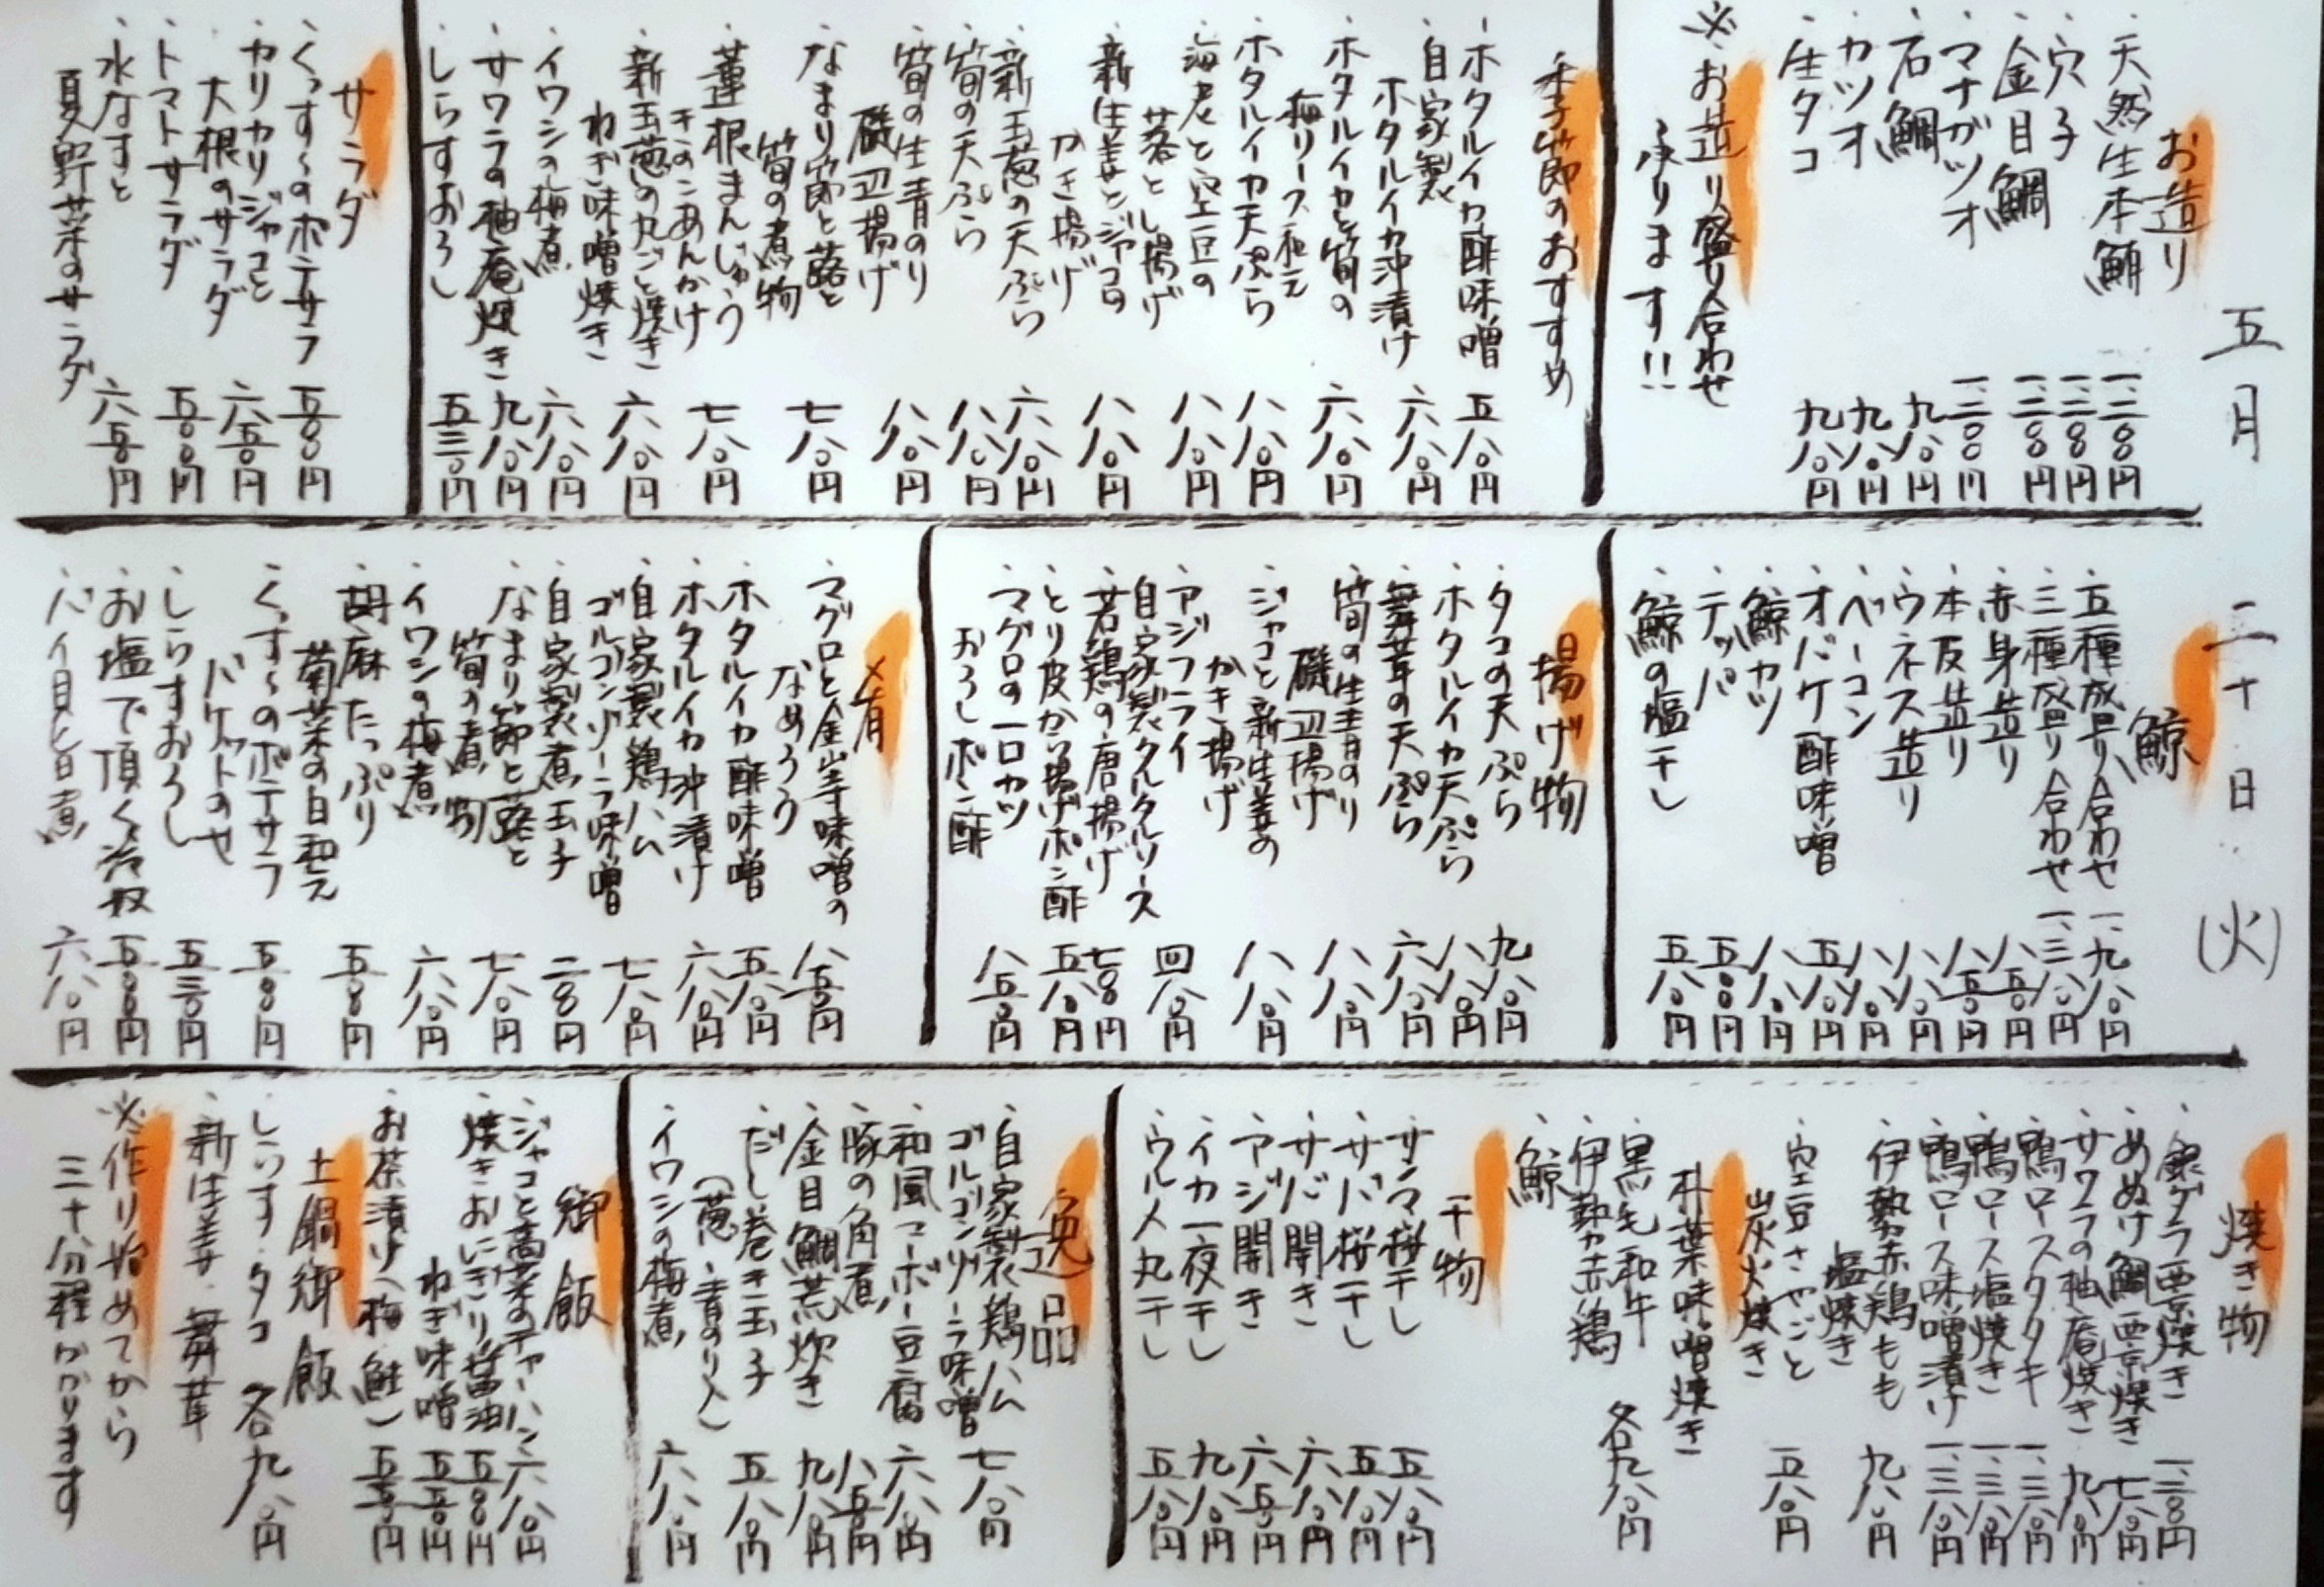 五月二十日(火)
お造り
・天然生本鮪 一、二〇〇円
・穴子 一、二〇〇円
・金目鯛 一、二〇〇円
・マナガツオ 一、二〇〇円
・石鯛 九八〇円
・カツオ 九八〇円
・生タコ 九八〇円
※お造り盛り合わせ
承ります!!
季節のおすすめ
・ホタルイカ酢味噌 五八〇円
・自家製
ホタルイカ沖漬け 六八〇円
・ホタルイカと筍の
梅リース和え 六八〇円
・ホタルイカ天ぷら 八八〇円
・海老と空豆の
落とし揚げ 八八〇円
・新生姜とジャコの
かき揚げ 八八〇円
・新玉葱の天ぷら 六八〇円
・筍の天ぷら 八八〇円
・筍の生青のり
磯辺揚げ 八八〇円
・なまり節と蕗と
筍の煮物 七八〇円
・蓮根まんじゅう
きのこあんかけ 七八〇円
・新玉葱の丸ごと焼き
ねぎ味噌焼き 六八〇円
・イワシの梅煮 六八〇円
・サワラの柚庵焼き 九八〇円
・しらすおろし 五三〇円
サラダ
・くっす〜のポテサラ 五〇〇円
・カリカリジャコと
大根のサラダ 六五〇円
・トマトサラダ 五〇〇円
・水なすと
夏野菜のサラダ 六五〇円
鯨
・五種盛り合わせ 一、九八〇円
・三種盛り合わせ 一、三八〇円
・赤身造り 八五〇円
・本皮造り 八五〇円
・ウネス造り 八八〇円
・ベーコン 八八〇円
・オバケ酢味噌 五八〇円
・鯨カツ 八八〇円
・テッパ 五〇〇円
・鯨の塩干し 五八〇円
揚げ物
・タコの天ぷら 九八〇円
・ホタルイカ天ぷら 八八〇円
・舞茸の天ぷら 六八〇円
・筍の生青のり
磯辺揚げ 八八〇円
・ジャコと新生姜の
かき揚げ 八八〇円
・アジフライ
自家製タルタルソース 四八〇円
・若鶏の唐揚げ 七〇〇円
・とり皮から揚げポン酢 五八〇円
・マグロの一口カツ
おろしポン酢 八五〇円
〆肴
・マグロと金山寺味噌の
なめろう 八五〇円
・ホタルイカ酢味噌 五八〇円
・ホタルイカ沖漬け 六八〇円
・自家製鶏ハム
ゴルゴンゾーラ味噌 七八〇円
・自家製煮玉子 二〇〇円
・なまり節と蕗と
筍の煮物 七八〇円
・イワシの梅煮 六八〇円
・胡麻たっぷり
菊菜の白和え 五〇〇円
・くっす〜のポテサラ
バケットのせ 五〇〇円
・しらすおろし 五三〇円
・お塩で頂く冷奴 五〇〇円
・バイ貝と旨煮 六八〇円
焼き物
・銀ダラ西京焼き 一、三〇〇円
・めぬけ鯛西京焼き 七八〇円
・サワラの柚庵焼き 九八〇円
・鴨ロースタタキ 一、三八〇円
・鴨ロース塩焼き 一、三八〇円
・鴨ロース味噌漬け 一、三八〇円
・伊勢赤鶏もも
塩焼き 九八〇円
・空豆さやごと
炭火焼き 五八〇円
朴葉味噌焼き
・黒毛和牛
・伊勢赤鶏 各九八〇円
・鯨
干物
・サンマ桜干し 五八〇円
・サバ桜干し 五八〇円
・サバ開き 六八〇円
・アジ開き 六五〇円
・イカ一夜干し 九八〇円
・ウルメ丸干し 五八〇円
逸品
・自家製鶏ハム
ゴルゴンゾーラ味噌 七八〇円
・和風マーボー豆腐 六八〇円
・豚の角煮 八五〇円
・金目鯛荒炊き 九八〇円
・だし巻き玉子
(葱・青のり入) 五八〇円
・イワシの梅煮 六八〇円
御飯
・ジャコと高菜のチャーハン 六八〇円
・焼きおにぎり醤油 五〇〇円
ねぎ味噌 五五〇円
・お茶漬け(梅・鮭) 五五〇円
土鍋御飯
・しらす・タコ 各九八〇円
・新生姜・舞茸
※作り始めてから
三十分程かかります